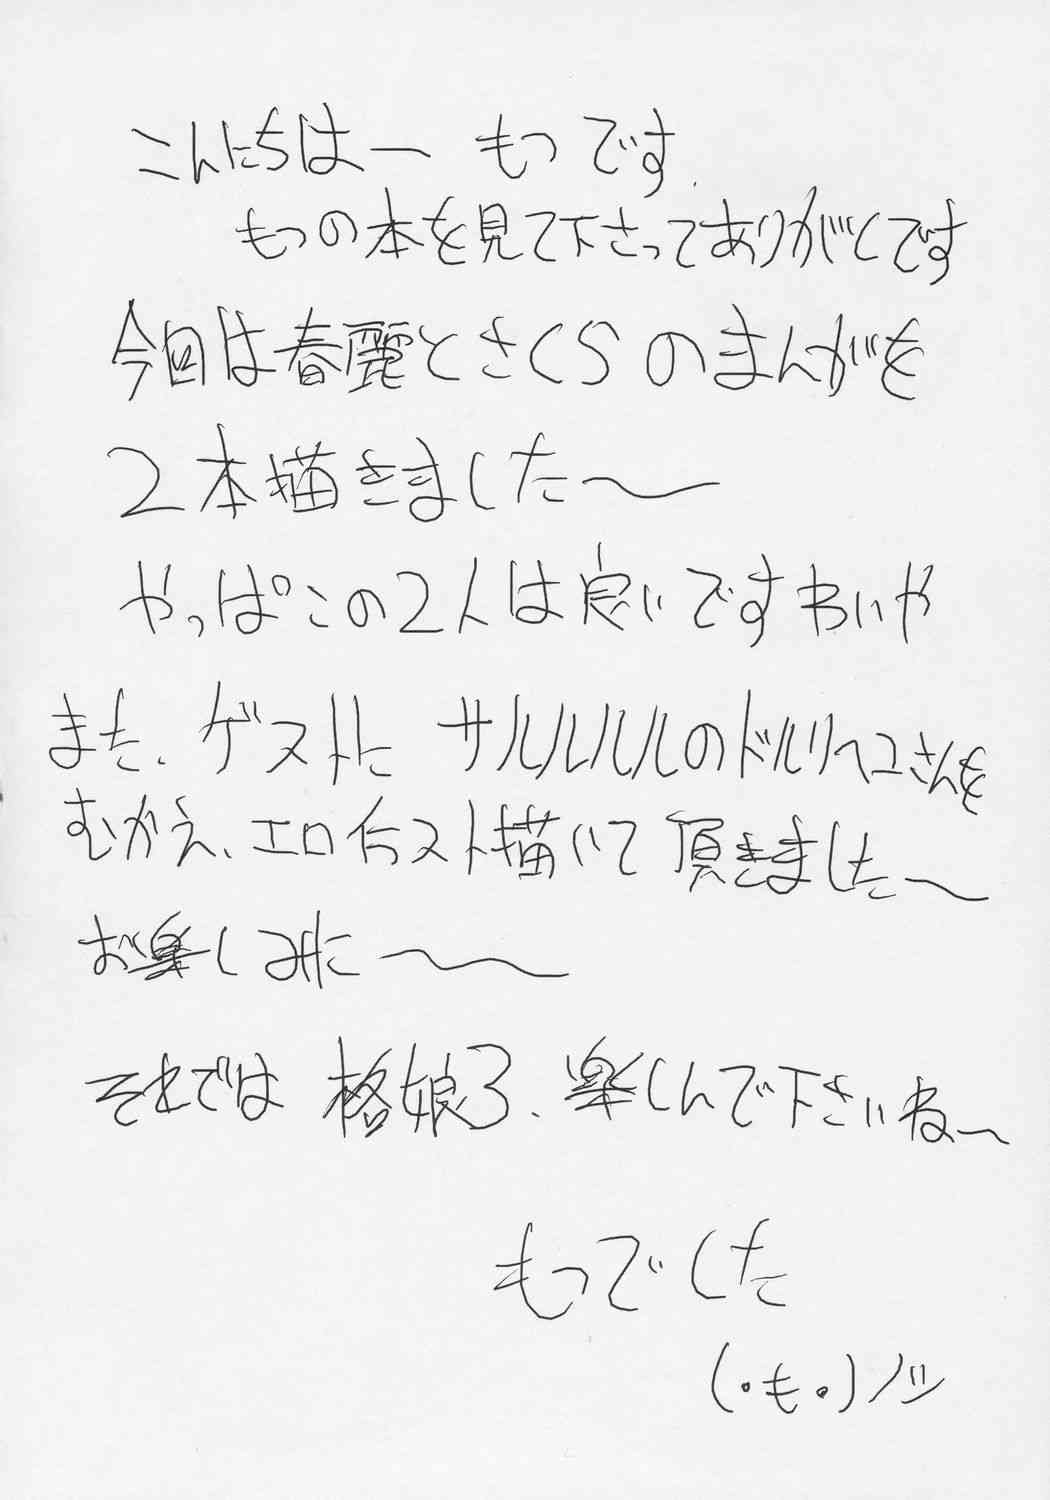 こんにちはー もつ です.
もつの本を見て下さってありがとです
今回は春麗とさくらのまんがを
2本描きました〜
やっぱこの2人は良いですわいや
また、ゲストに サルルルルのドルリヘユさんを
むかえ、エロイラスト描いて頂きました〜
お楽しみに〜
それでは 格娘3、楽しんで下さいね〜
もつでした
(・も・)ノシ